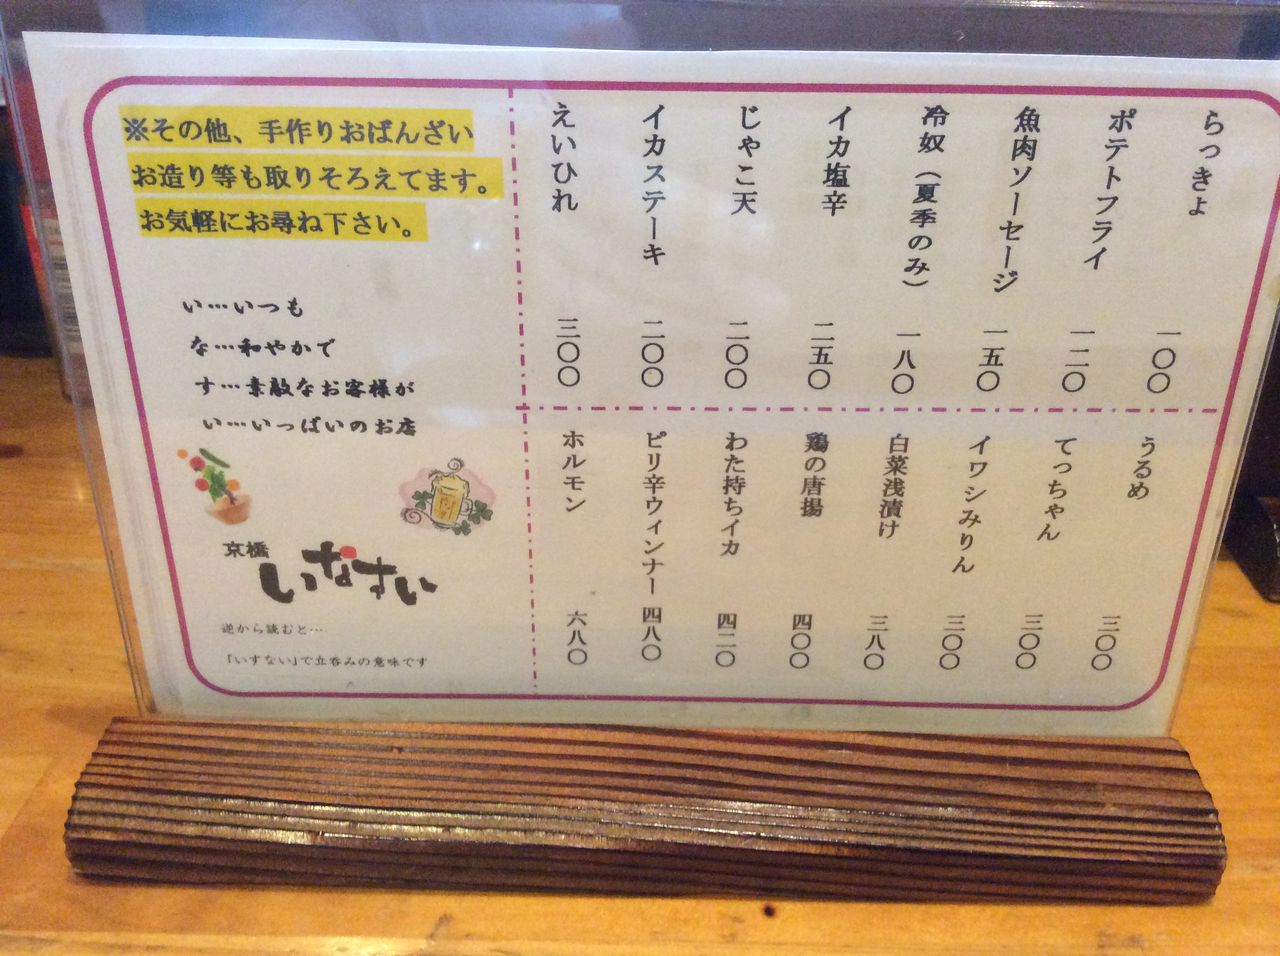 らっきょ 一〇〇
ポテトフライ 一二〇
魚肉ソーセージ 一五〇
冷奴（夏季のみ） 一八〇
イカ塩辛 二五〇
じゃこ天 二〇〇
イカステーキ 二〇〇
えいひれ 三〇〇
うるめ 三〇〇
てっちゃん 三〇〇
イワシみりん 三〇〇
白菜浅漬け 三八〇
鶏の唐揚 四〇〇
わた持ちイカ 四二〇
ピリ辛ウィンナー 四八〇
ホルモン 六八〇
※その他、手作りおばんざい
お造り等も取りそろえてます。
お気軽にお尋ね下さい。
い…いつも
な…和やかで
す…素敵なお客様が
い…いっぱいのお店
京橋
いなすい
逆から読むと…
「いすない」で立呑みの意味です